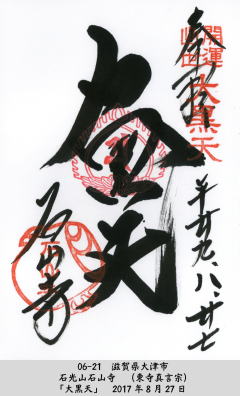 奉拝
開運
大黒天
大黒天
平廿九、八、廿七
石山寺
06-21　滋賀県大津市
石光山石山寺　（東寺真言宗）
「大黒天」　2017年8月27日